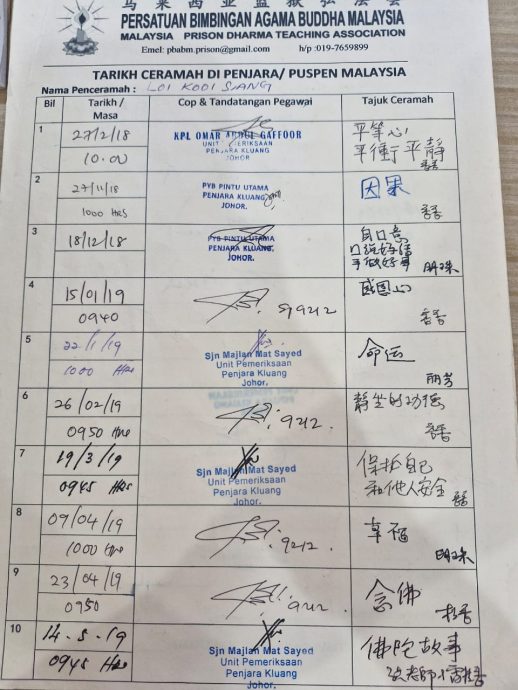 马来西亚监狱弘法会
PERSATUAN BIMBINGAN AGAMA BUDDHA MALAYSIA
MALAYSIA PRISON DHARMA TEACHING ASSOCIATION
Emel: pbabm.prison@gmail.com h/p :019-7659899
TARIKH CERAMAH DI PENJARA/ PUSPEN MALAYSIA
Nama Penceramah : LOI KODI SIANG
Bil Tarikh / Masa Cop & Tandatangan Pegawai Tajuk Ceramah
1 27/2/18 KPL OMAR ABDUL GAFFOOR 平等心
UNIT PEMERIKSAAN 平衡平静
10.00 PENJARA KLUANG
JOHOR
2 27/11/18 PYB PINTU UTAMA 因果
1000 HRS PENJARA KLUANG
JOHOR.
3 18/12/18 PYB PINTU UTAMA 身口意
PENJARA KLUANG, 口说好话
JOHOR. 手做好事 明珠
4 15/01/19 感恩心
0940 Sj 9212
5 22/1/19 Sjn Majlan Mat Sayed 命运
1000 Hrs Unit Pemeriksaan
Penjara Kluang 丽芳
Johor.
6 26/02/19 静坐的功德
0950 Hrs 9212
7 19/3/19 Sjn Majlan Mat Sayed 保护自己
0945 Hrs Unit Pemeriksaan 和他人安全
Penjara Kluang
Johor.
8 09/04/19 幸福
1000 Hrs 9212. 明珠
9 23/04/19 念佛
0950 9212
10 14.5.19 Sjn Majlan Mat Sayed 佛陀故事
0945 Hrs Unit Pemeriksaan
Penjara Kluang
Johor.